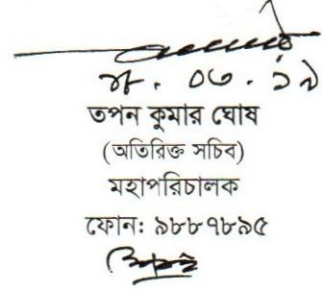 তপন কুমার ঘোষ
(অতিরিক্ত সচিব)
মহাপরিচালক
ফোন: ৯৮৮৭৮৯৫